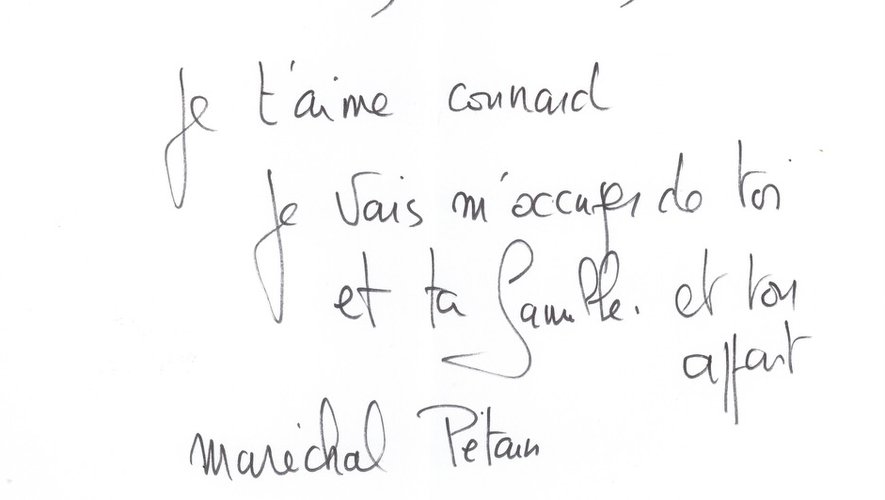 Je t'aime connard
Je vais m'occuper de toi
et ta famille. et ton
appart
maréchal Pétain